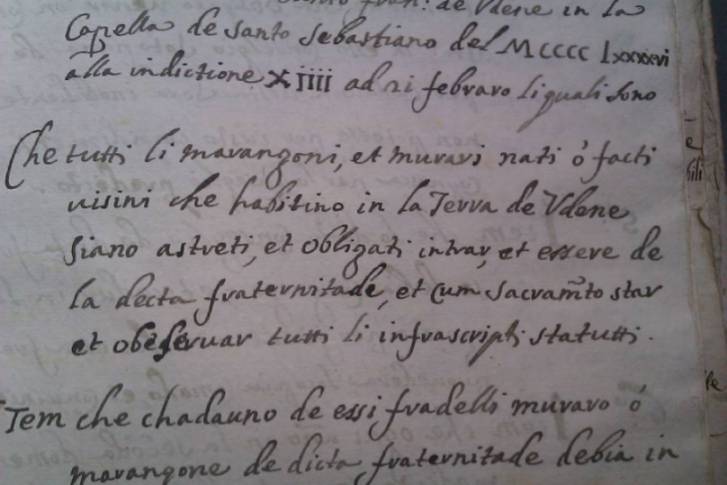 fran: de Vdene in la
Capella de santo sebastiano del MCCCC lxxxxvi
alla indictione XIIII ad 21 febraro li quali sono
Che tutti li marangoni, et murari nati ó facti
uisini che habitino in la Terra de Vdene
siano astreti, et obligati intrar, et essere de
la decta fraternitade, et cum sacramto star
et obeseruar tutti li infrascripti statutti.
Item che chadauno de essi fradelli muraro ó
marangone de dicta fraternitade debia in